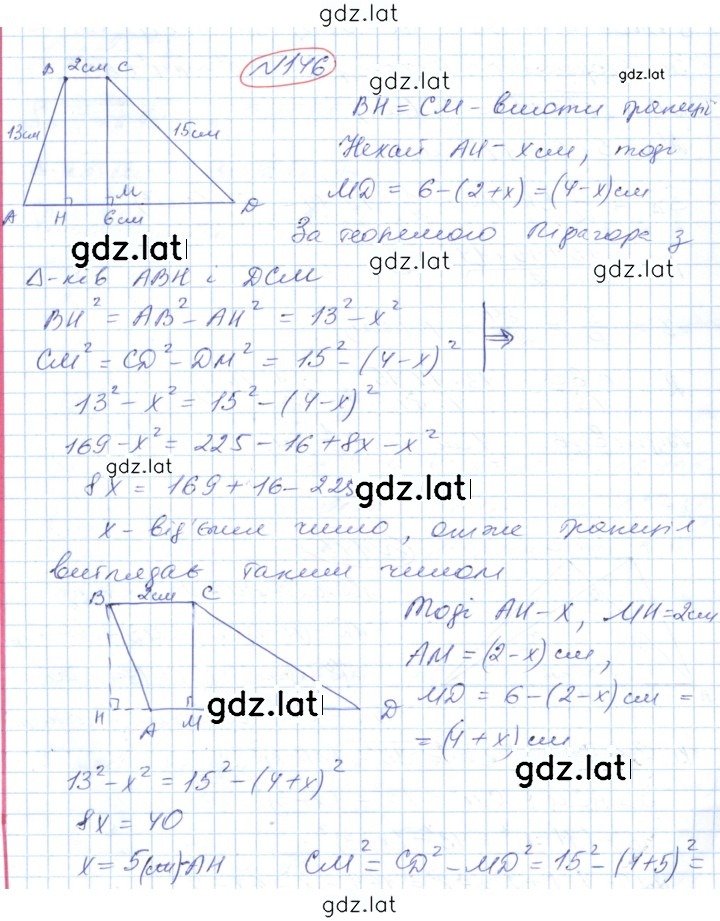 gdz.lat
B 2см C
№146
gdz.lat
gdz.lat
BH = CM - висоти трапеції
13см
15см
Нехай AH - x см, тоді
MD = 6 - (2+x) = (4-x) см
A H 6см M D
За теоремою Піфагора з
gdz.lat
gdz.lat
gdz.lat
Δ-ків ABH і DCM
BH² = AB² - AH² = 13² - x²
CM² = CD² - DM² = 15² - (4-x)² ⇒
13² - x² = 15² - (4-x)²
169 - x² = 225 - 16 + 8x - x²
gdz.lat
8x = 169 + 16 - 225
gdz.lat
x - від'ємне число, отже трапеція
виглядає таким чином
B 2см C
Тоді AH - x, MH = 2см
AM = (2-x) см,
MD = 6 - (2-x) см =
= (4+x) см
H A M D
gdz.lat
gdz.lat
13² - x² = 15² - (4+x)²
8x = 40
x = 5(см) - AH CM² = CD² - MD² = 15² - (4+5)² =
gdz.lat